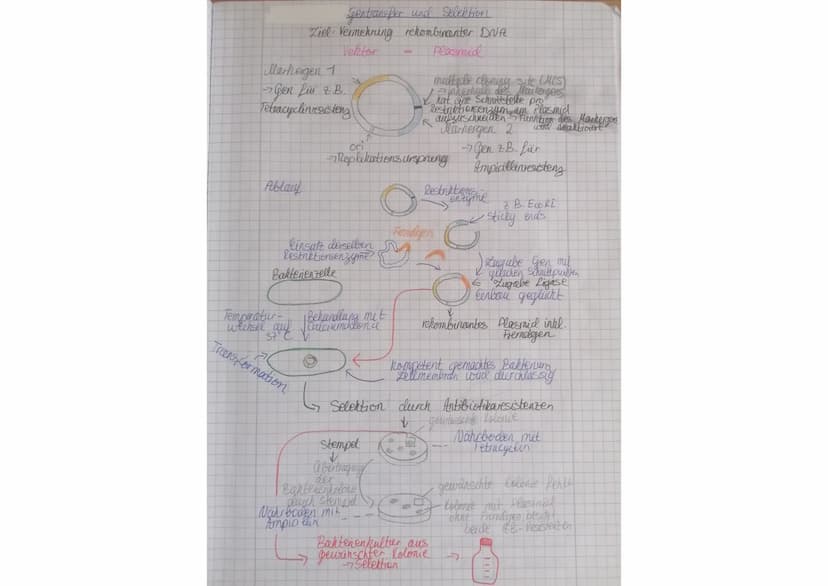 Gentransfer und Selektion
Ziel: Vermehrung rekombinanter DNA
Vektor = Plasmid
Markergen 1
→ Gen für z.B.
Tetracyclinresistenz
multiple cloning site (MCS)
→ innerhalb des Markergens
hat eine Schnittstelle pro
Restriktionsenzym um Plasmid
aufzuschneiden → Funktion des Markergen
wird deaktiviert
Markergen 2
→ Gen z.B. für
Ampicillinresistenz
ori
→ Replikationsursprung
Ablauf
Restriktions-
enzyme
z.B. EcoRI
sticky ends
Fremdgen
Einsatz derselben
Restriktionsenzyme
Zugabe Gen mit
gleichen Schnittpunkten
Zugabe Ligase
Einbau geglückt
Bakterienzelle
rekombinantes Plasmid inkl.
Fremdgen
Temperatur-
wechsel auf
Behandlung mit
Calciumchlorid
Transformation
Kompetent gemachtes Bakterium
Zellmembran wird durchlässig
Selektion durch Antibiotikaresistenzen
gewünschte Kolonie
Stempel
Nährboden mit
Tetracyclin
Übertragung
der
Bakterienkolonie
durch Stempel
gewünschte Kolonie fehlt
Nährboden mit
Kolonie mit Plasmid
ohne Fremdgen besitzt
beide
Bakterienkultur aus
gewünschter Kolonie
→ Selektion